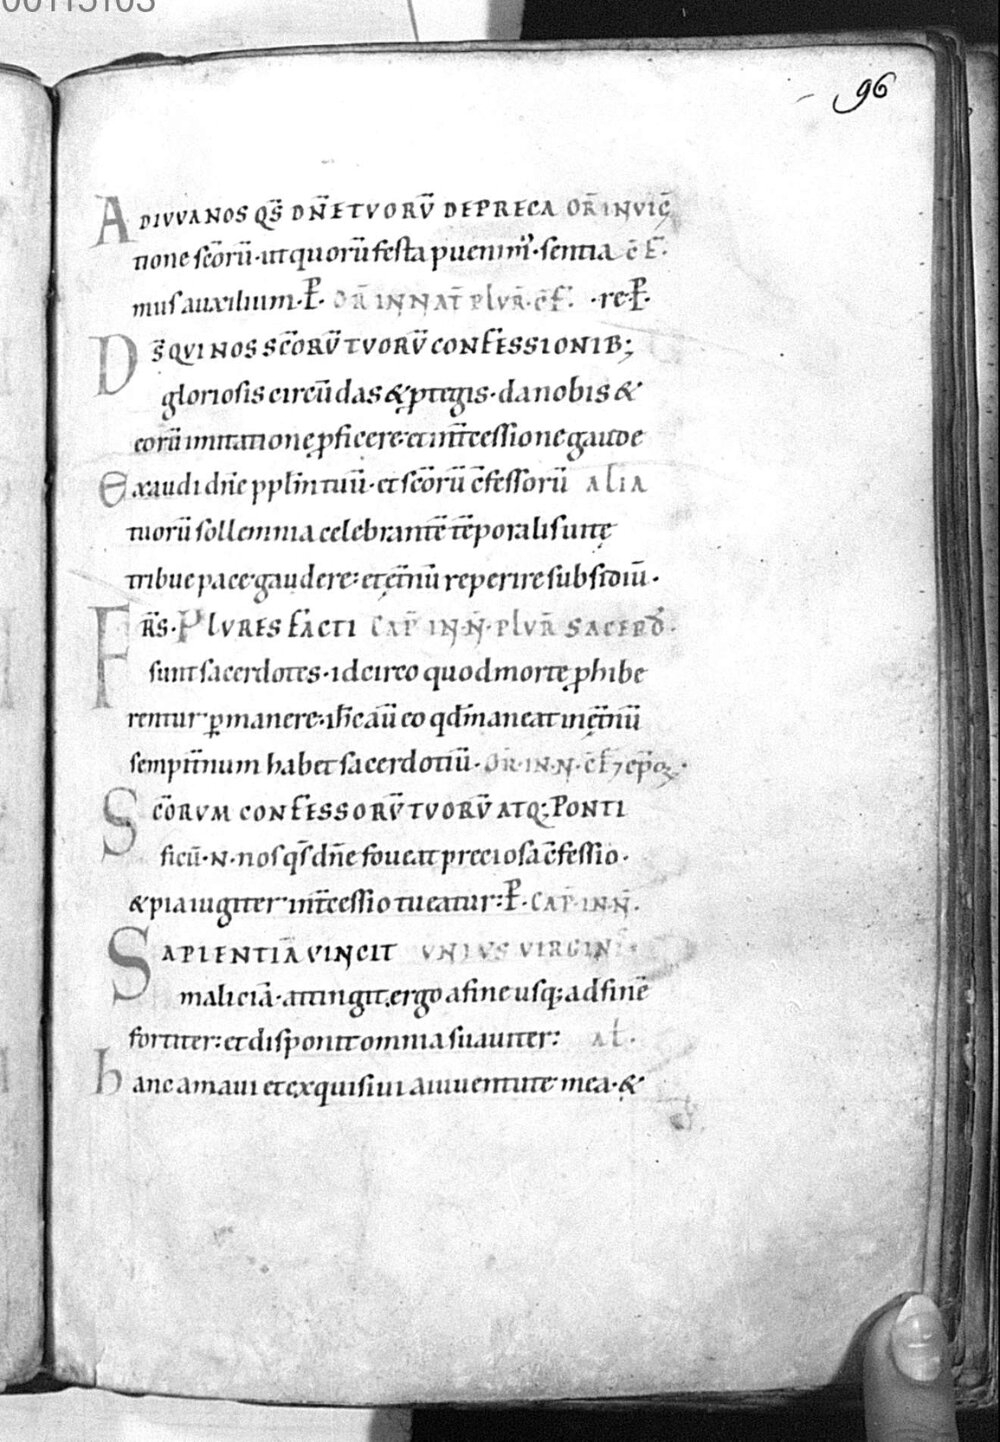 00113103
96
ADIVVANOS QS̄ DN̄E TVORŪ DEPRECA OR̄ IN VIḠ
tione sc̄orū · ut quorū festa puenim᷒ · sentia c̄ F̄ ·
mus auxilium · P̄ · OR̄ IN NAT̄ PLVR̄ · c̄f · · re · P̄ ·
DS̄ QVI NOS SC̄ORŪ TVORŪ CONFESSIONIB;
gloriosis circūdas & ꝓtegis · da nobis &
eorū imitatione ꝓficere · et int̄cessione gaude
Exaudi dn̄e ppl̄m tuū · et sc̄orū c̄fessorū ALIA
tuorū sollemnia celebrantē tēporali s uitę
tribue pace gaudere : et et̄nū reperire subsidiū ·
FR̄S · PLVRES FACTI CAP̄ IN · N̄ · PLVR̄ SACERD̄ ·
sunt sacerdotes · idcirco quod morte ꝓhibe
rentur ꝑmanere · ih̄c aū eo qd̄ maneat in ęt̄nū
sempit̄num habet sacerdotiū · OR̄ · IN · N · c̄f 7 ep̄oꝝ ·
SC̄ORVM CONFESSORŪ TVORŪ ATQ; PONTI
ficū · N · nos qs̄ dn̄e foueat preciosa c̄fessio ·
& pia iugiter int̄cessio tueatur : P̄ · CAP̄ · IN · N̄ ·
SAPIENTIĀ VINCIT VNIVS VIRGINIS ·
maliciā · attingit ergo a fine usq; ad finē
fortiter : et disponit omnia suauiter : AL̄ ·
hanc amaui et exquisiui a iuuentute mea · &